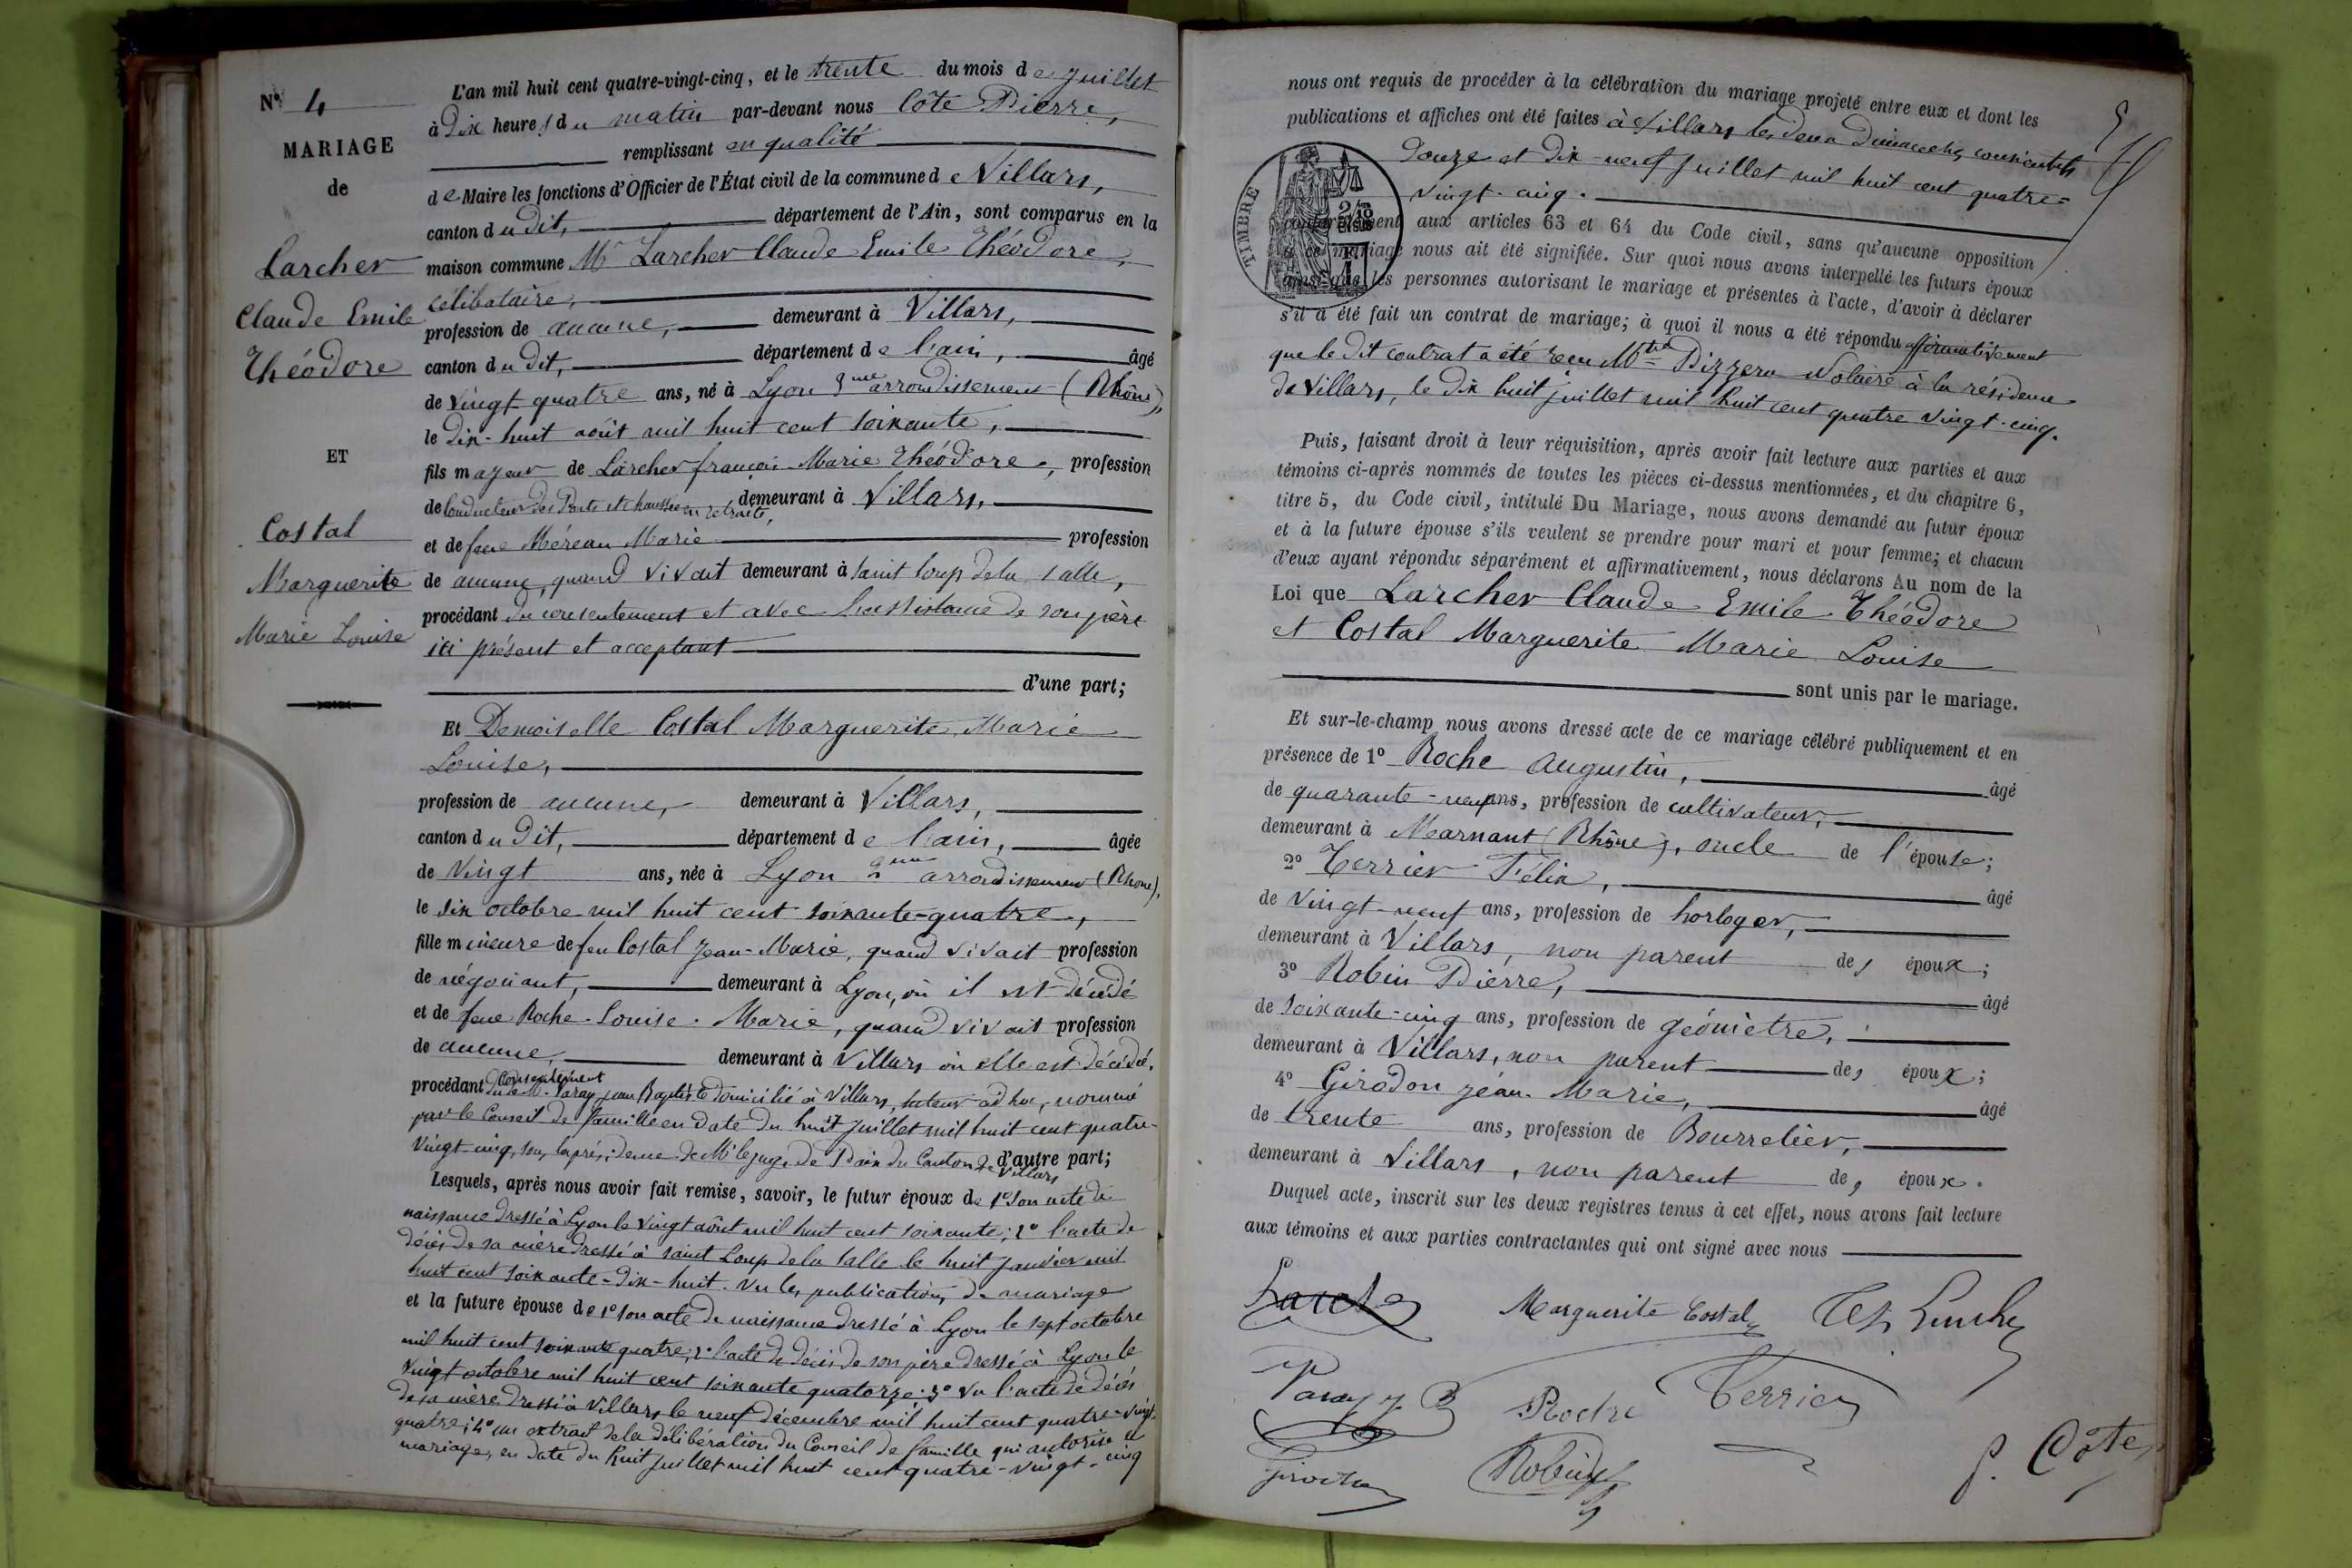 N° 4
MARIAGE
de
Larcher
Claude Emile
Théodore
ET
Costal
Marguerite
Marie Louise
L'an mil huit cent quatre-vingt-cinq, et le trente du mois de Juillet
à Dix heures du matin par-devant nous Côte Pierre,
remplissant en qualité
de Maire les fonctions d'Officier de l'État civil de la commune de Villars,
canton du Dit, département de l'Ain, sont comparus en la
maison commune Mr Larcher Claude Emile Théodore,
célibataire,
profession de aucune, demeurant à Villars,
canton du Dit, département de l'ain, âgé
de vingt quatre ans, né à Lyon 3me arrondissement (Rhône),
le dix-huit août mil huit cent soixante,
fils majeur de Larcher françois Marie Théodore, profession
de Conducteur des Ponts et chaussées en retraite, demeurant à Villars,
et de feue Méreau Marie profession
de aucune, quand vivait demeurant à saint loup de la salle,
procédant du consentement et avec l'assistance de son père
ici présent et acceptant
d'une part;
Et Demoiselle Costal Marguerite Marie
Louise,
profession de aucune, demeurant à Villars,
canton du Dit, département de l'ain, âgée
de vingt ans, née à Lyon 2me arrondissement (Rhône),
le six octobre mil huit cent soixante-quatre,
fille mineure de feu Costal Jean-Marie, quand vivait profession
de négociant, demeurant à Lyon, où il est décédé
et de feue Roche Louise Marie, quand vivait profession
de aucune, demeurant à Villars où elle est décédée.
procédant du consentement de Mr Paray Jean Baptiste domicilié à Villars, tuteur ad hoc, nommé
par le Conseil de famille en date du huit juillet mil huit cent quatre-
vingt-cinq, sous la présidence de Mr le juge de Paix du Canton de Villars d'autre part;
Lesquels, après nous avoir fait remise, savoir, le futur époux de 1° son acte de
naissance dressé à Lyon le vingt août mil huit cent soixante; 2° l'acte de
décès de sa mère dressé à saint Loup de la salle le huit janvier mil
huit cent soixante-dix-huit. Vu les publications de mariage
et la future épouse de 1° son acte de naissance dressé à Lyon le sept octobre
mil huit cent soixante quatre; 2° l'acte de décès de son père dressé à Lyon le
vingt octobre mil huit cent soixante quatorze; 3° vu l'acte de décès
de sa mère dressé à Villars le neuf décembre mil huit cent quatre-vingt-
quatre; 4° un extrait de la délibération du Conseil de famille qui autorise le
mariage, en date du huit juillet mil huit cent quatre-vingt-cinq
nous ont requis de procéder à la célébration du mariage projeté entre eux et dont les
publications et affiches ont été faites à Villars les deux Dimanches consécutifs
douze et dix-neuf juillet mil huit cent quatre-
vingt-cinq.
TIMBRE
conformément aux articles 63 et 64 du Code civil, sans qu'aucune opposition
à ce mariage nous ait été signifiée. Sur quoi nous avons interpellé les futurs époux
ainsi que les personnes autorisant le mariage et présentes à l'acte, d'avoir à déclarer
s'il a été fait un contrat de mariage; à quoi il nous a été répondu affirmativement
que le dit contrat a été reçu Mtre Notaire à la résidence
de Villars, le dix huit juillet mil huit cent quatre vingt-cinq.
Puis, faisant droit à leur réquisition, après avoir fait lecture aux parties et aux
témoins ci-après nommés de toutes les pièces ci-dessus mentionnées, et du chapitre 6,
titre 5, du Code civil, intitulé Du Mariage, nous avons demandé au futur époux
et à la future épouse s'ils veulent se prendre pour mari et pour femme; et chacun
d'eux ayant répondu séparément et affirmativement, nous déclarons Au nom de la
Loi que Larcher Claude Emile Théodore
et Costal Marguerite Marie Louise
sont unis par le mariage.
Et sur-le-champ nous avons dressé acte de ce mariage célébré publiquement et en
présence de 1° Roche Augustin, âgé
de quarante-neuf ans, profession de cultivateur,
demeurant à Mornant (Rhône), oncle de l'épouse;
2° Terrier Félix, âgé
de vingt-neuf ans, profession de horloger,
demeurant à Villars, non parent des époux;
3° Robin Pierre, âgé
de soixante-cinq ans, profession de géomètre,
demeurant à Villars, non parent des époux;
4° Girodon Jean Marie, âgé
de trente ans, profession de Bourrelier,
demeurant à Villars, non parent des époux.
Duquel acte, inscrit sur les deux registres tenus à cet effet, nous avons fait lecture
aux témoins et aux parties contractantes qui ont signé avec nous
Larcher Marguerite Costal
Paray J B Roche Terrier
Girodon Robin P. Côte